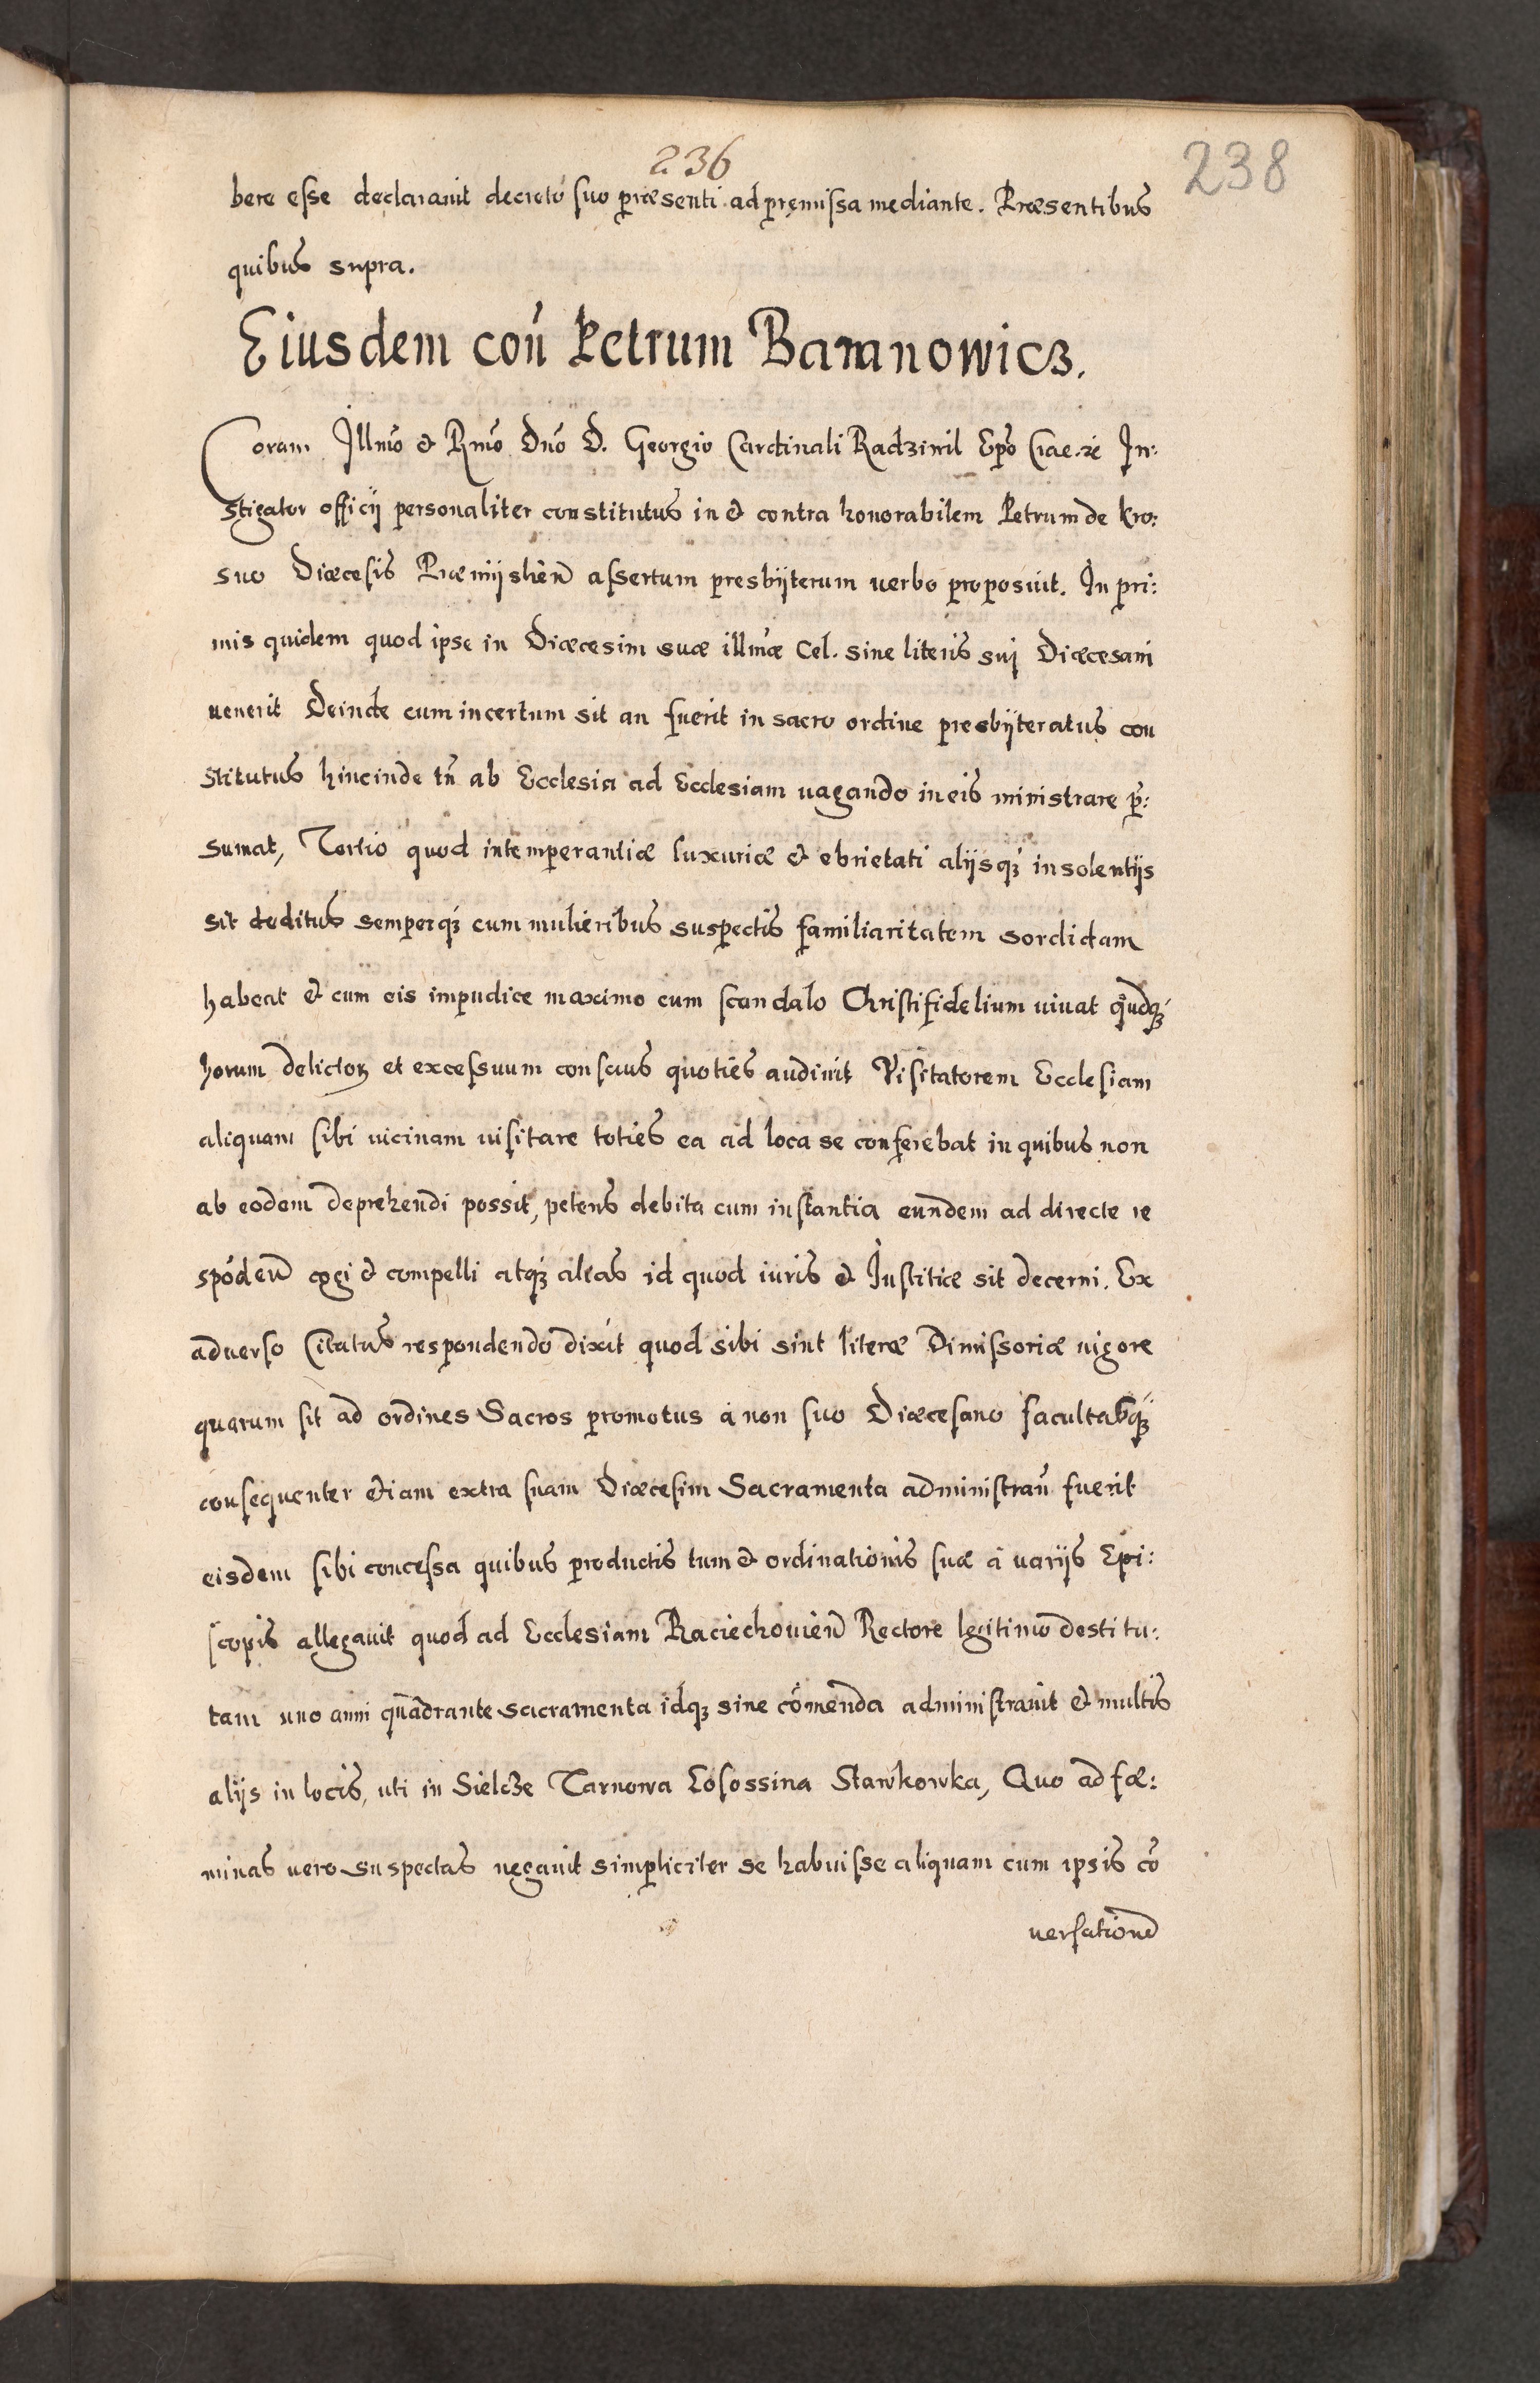 236
238
bere esse declarauit decreto suo præsenti ad premissa mediante. Præsentibus
quibus supra.
Eiusdem coñ Petrum Baranowicz.
Coram Illmo & Rmo Dno D. Georgio Cardinali Radziwil Epo Crac. &c In:
stigator officij personaliter constitutus in & contra honorabilem Petrum de Kro:
sno Diœcesis Præmijslien assertum presbijterum uerbo proposuit. In pri:
mis quidem quod ipse in Diœcesim suæ illmæ Cel. sine literis sui Diœcesani
uenerit Deinde cum incertum sit an fuerit in sacro ordine presbijteratus con
stitutus hincinde tñ ab Ecclesia ad Ecclesiam uagando in eis ministrare p̃:
sumat, Tertio quod intemperantiæ luxuriæ & ebrietati alijsq̃ insolentijs
sit deditus semperq̃ cum mulieribus suspectis familiaritatem sordidam
habeat & cum eis impudice maximo cum scandalo Christifidelium uiuat quodq̃
horum delictoꝝ et excessuum conscius quoties audiuit Visitatorem Ecclesiam
aliquam sibi uicinam uisitare toties ea ad loca se conferebat in quibus non
ab eodem deprehendi possit, petens debita cum instantia eundem ad directe re
spõdeñ cogi & compelli atq̃ alias id quod iuris & Iustitiæ sit decerni. Ex
aduerso Citatus respondendo dixit quod sibi sint literæ Dimissoriæ uigore
quarum sit ad ordines Sacros promotus à non suo Diœcesano facultasq̃
consequenter etiam extra suam Diœcesim Sacramenta administrañ fuerit
eisdem sibi concessa quibus productis tum & ordinationis suæ à uarijs Epi:
scopis allegauit quod ad Ecclesiam Raciechouieñ Rectore legitimo destitu:
tam uno anni quadrante sacramenta idq̃ sine cõmenda administrauit & multis
alijs in locis, uti in Sielcze Tarnowa Lososina Stawkowka, Quo ad fœ:
minas uero suspectas negauit simpliciter se habuisse aliquam cum ipsis cõ
uersationẽ